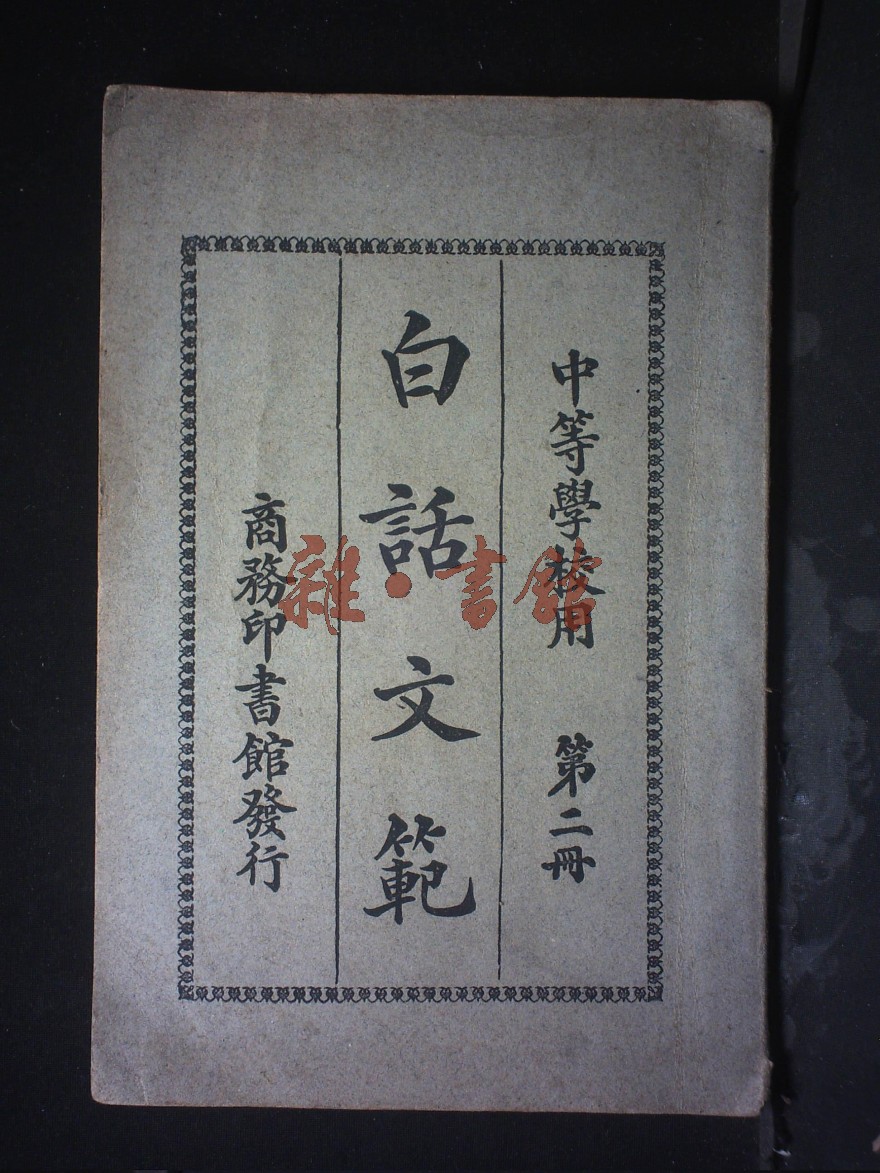 中等學校用 第二冊
白話文範
商務印書館發行
雜·書館